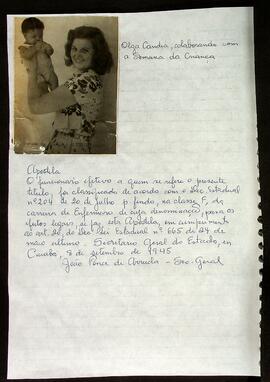 Olga Candia, colaborando com
a Semana da Criança
Apostila
O funcionário efetivo a quem se refere o presente
título, foi classificado de acordo com o Dec Estadual
nº 204 de 20 de julho p. findo, na classe F, da
carreira de Enfermeiro de cuja denominação, para os
efeitos legais, se faz esta Apostila, em cumprimento
ao art. 20, do Dec. Lei Estadual nº 665 de 24 de
maio último. Secretaria Geral do Estado, em
Cuiabá, 8 de setembro de 1945
João Ponce de Arruda - Sec-Geral